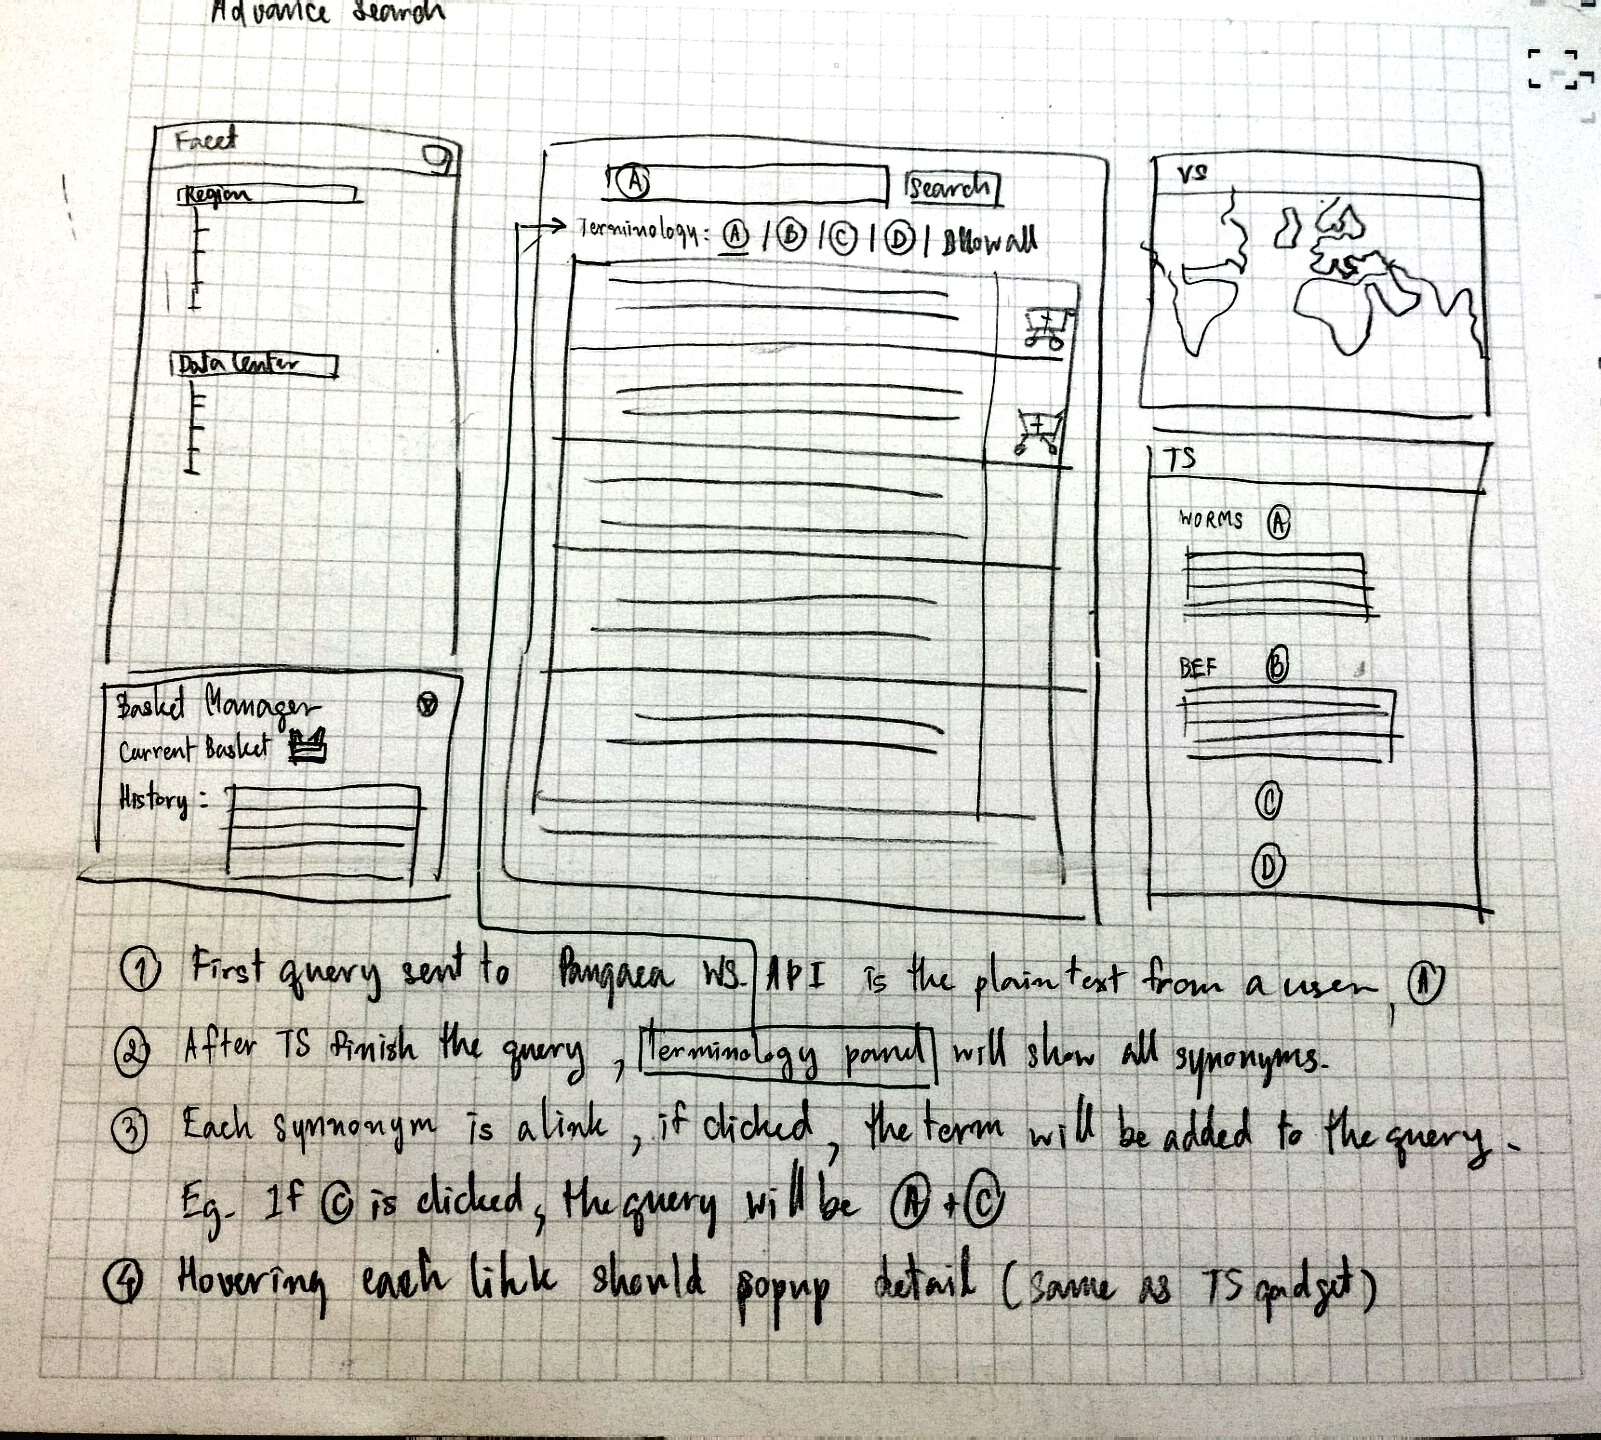 Advance Search
Facet
Region
Data Center
Basket Manager
Current Basket
History :
A
Search
Terminology: A | B | C | D | Show all
VS
TS
WORMS A
BEF B
C
D
1 First query sent to Pangaea WS. API is the plain text from a user, A
2 After TS finish the query, Terminology panel will show all synonyms.
3 Each synnonym is a link, if clicked, the term will be added to the query.
Eg. If C is clicked, the query will be A + C
4 Hovering each link should popup detail (same as TS gadget)